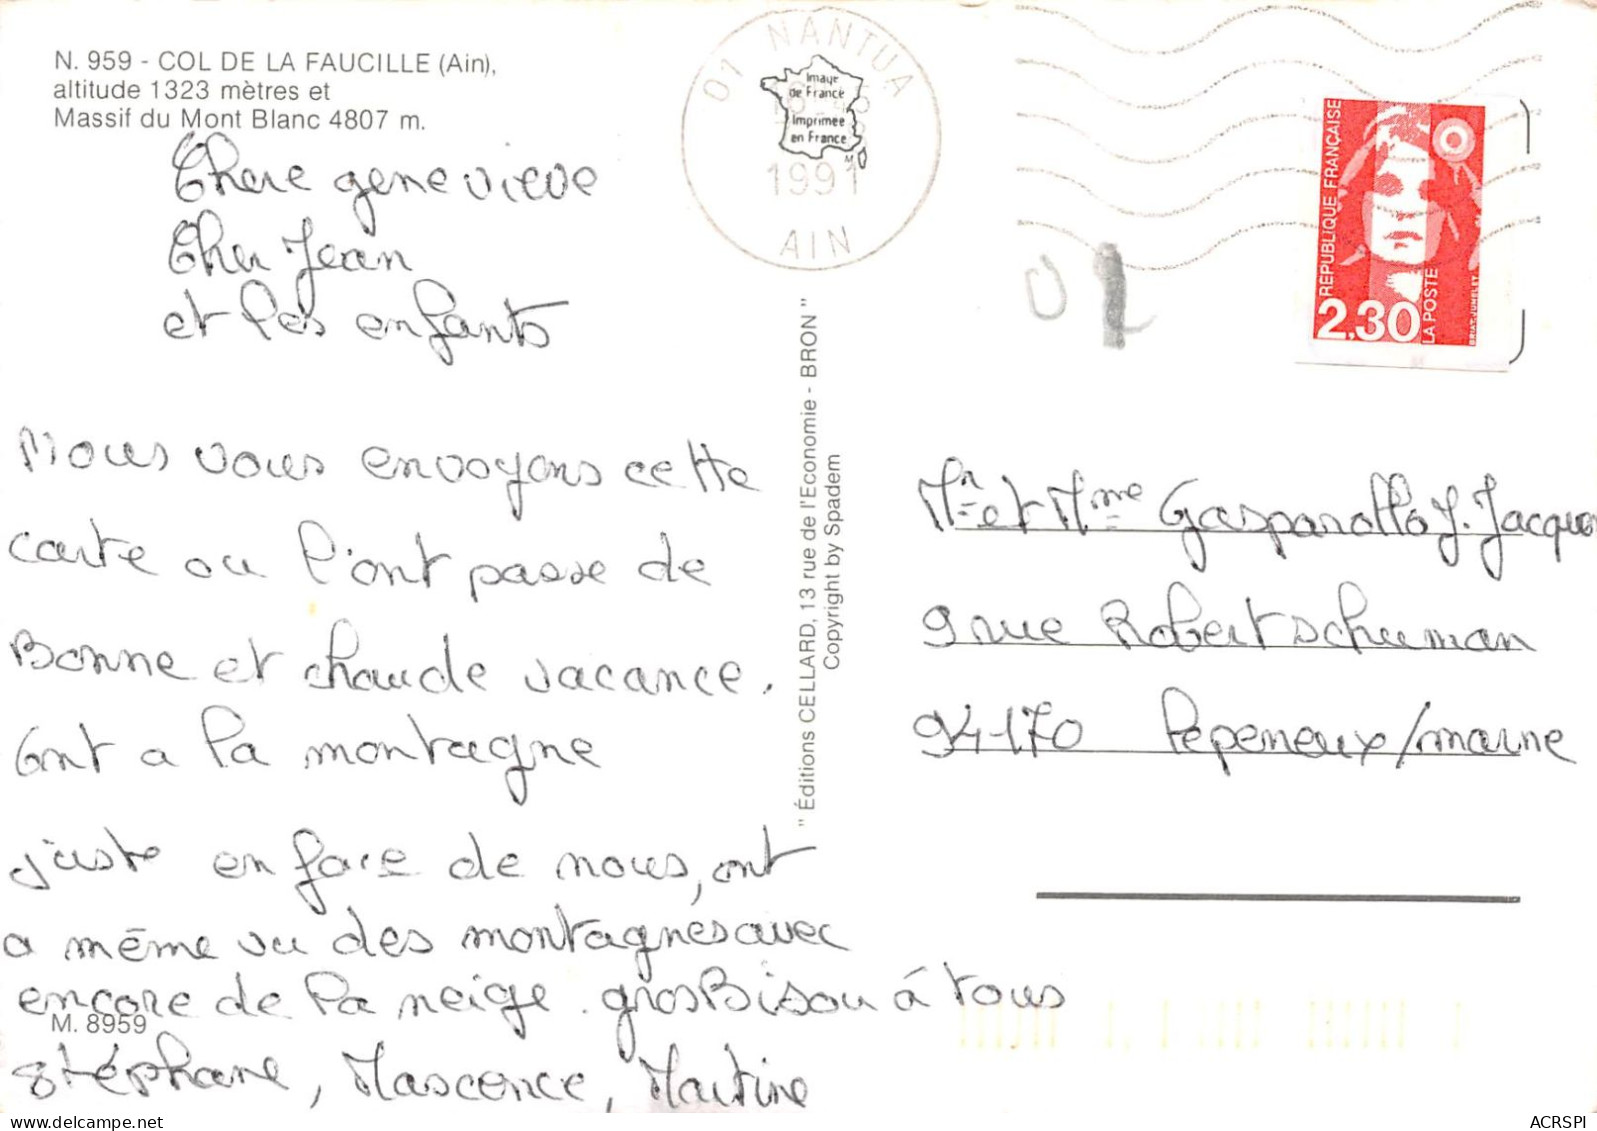 N. 959 - COL DE LA FAUCILLE (Ain),
altitude 1323 mètres et
Massif du Mont Blanc 4807 m.
Chere genevieve
Cher Jean
et les enfants
Nous vous envoyons cette
carte ou l'ont passe de
Bonne et chaude vacance.
Ont a la montagne
juste en face de nous, ont
a même vu des montagnes avec
encore de la neige. gros Bisou à tous
M. 8959
stéphane, Mascence, Martine
01 NANTUA
1991
AIN
Image
de France
Imprimee
en France
" Éditions CELLARD, 13 rue de l'Economie - BRON "
Copyright by Spadem
RÉPUBLIQUE FRANÇAISE
2,30
LA POSTE
BRIAT-JUMELET
Mr et Mme Gasparollo J. Jacques
9 rue Robert schuman
94170 Pepeneux/marne
ACRSPI